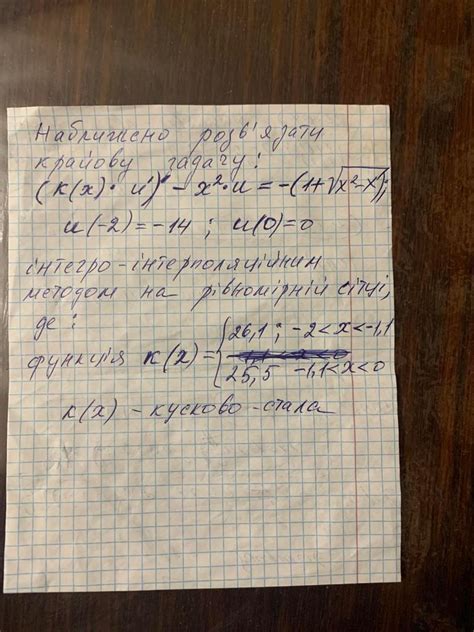 Наближено розв'язати
крайову задачу:
(k(x)·u')' - x²·u = -(1+√x²-x);
u(-2)=-14; u(0)=0
інтегро-інтерполяційним
методом на рівномірній сітці,
де:
функція k(x) = { 26,1; -2<x<-1,1
25,5 -1,1<x<0
k(x) - кусково-стала